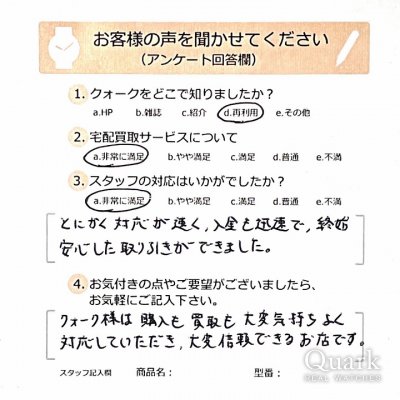 お客様の声を聞かせてください
(アンケート回答欄)
1. クォークをどこで知りましたか？
a.HP b.雑誌 c.紹介 d.再利用 e.その他
2. 宅配買取サービスについて
a.非常に満足 b.やや満足 c.満足 d.普通 e.不満
3. スタッフの対応はいかがでしたか？
a.非常に満足 b.やや満足 c.満足 d.普通 e.不満
とにかく対応が速く、入金も迅速で、終始
安心した取り引きができました。
4. お気付きの点やご要望がございましたら、
お気軽にご記入下さい。
クォーク様は購入も買取も大変気持ちよく
対応していただき、大変信頼できるお店です。
Quark
REAL WATCHES
スタッフ記入欄 商品名： 型番：